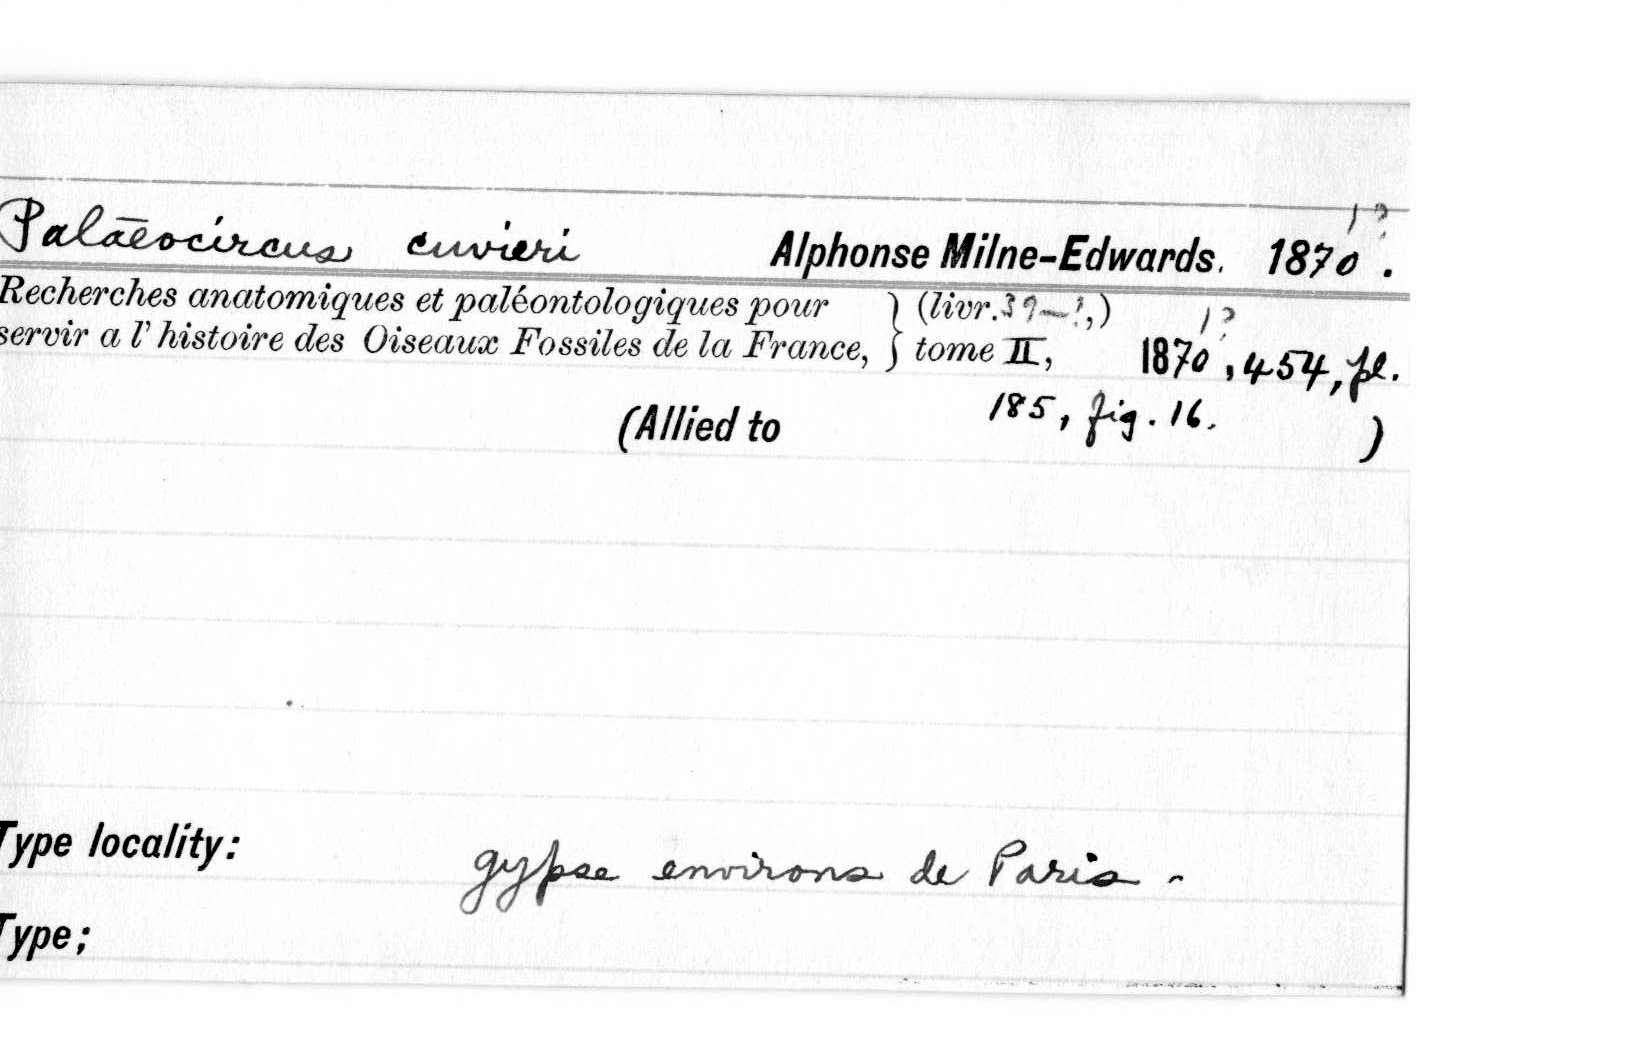 1?
Palaeocircus cuvieri Alphonse Milne-Edwards. 1870.
Recherches anatomiques et paléontologiques pour } (livr.39-?,) 1?
servir a l'histoire des Oiseaux Fossiles de la France, } tome II, 1870, 454, pl.
185, fig. 16.
(Allied to )
Type locality: gypse environs de Paris -
Type;